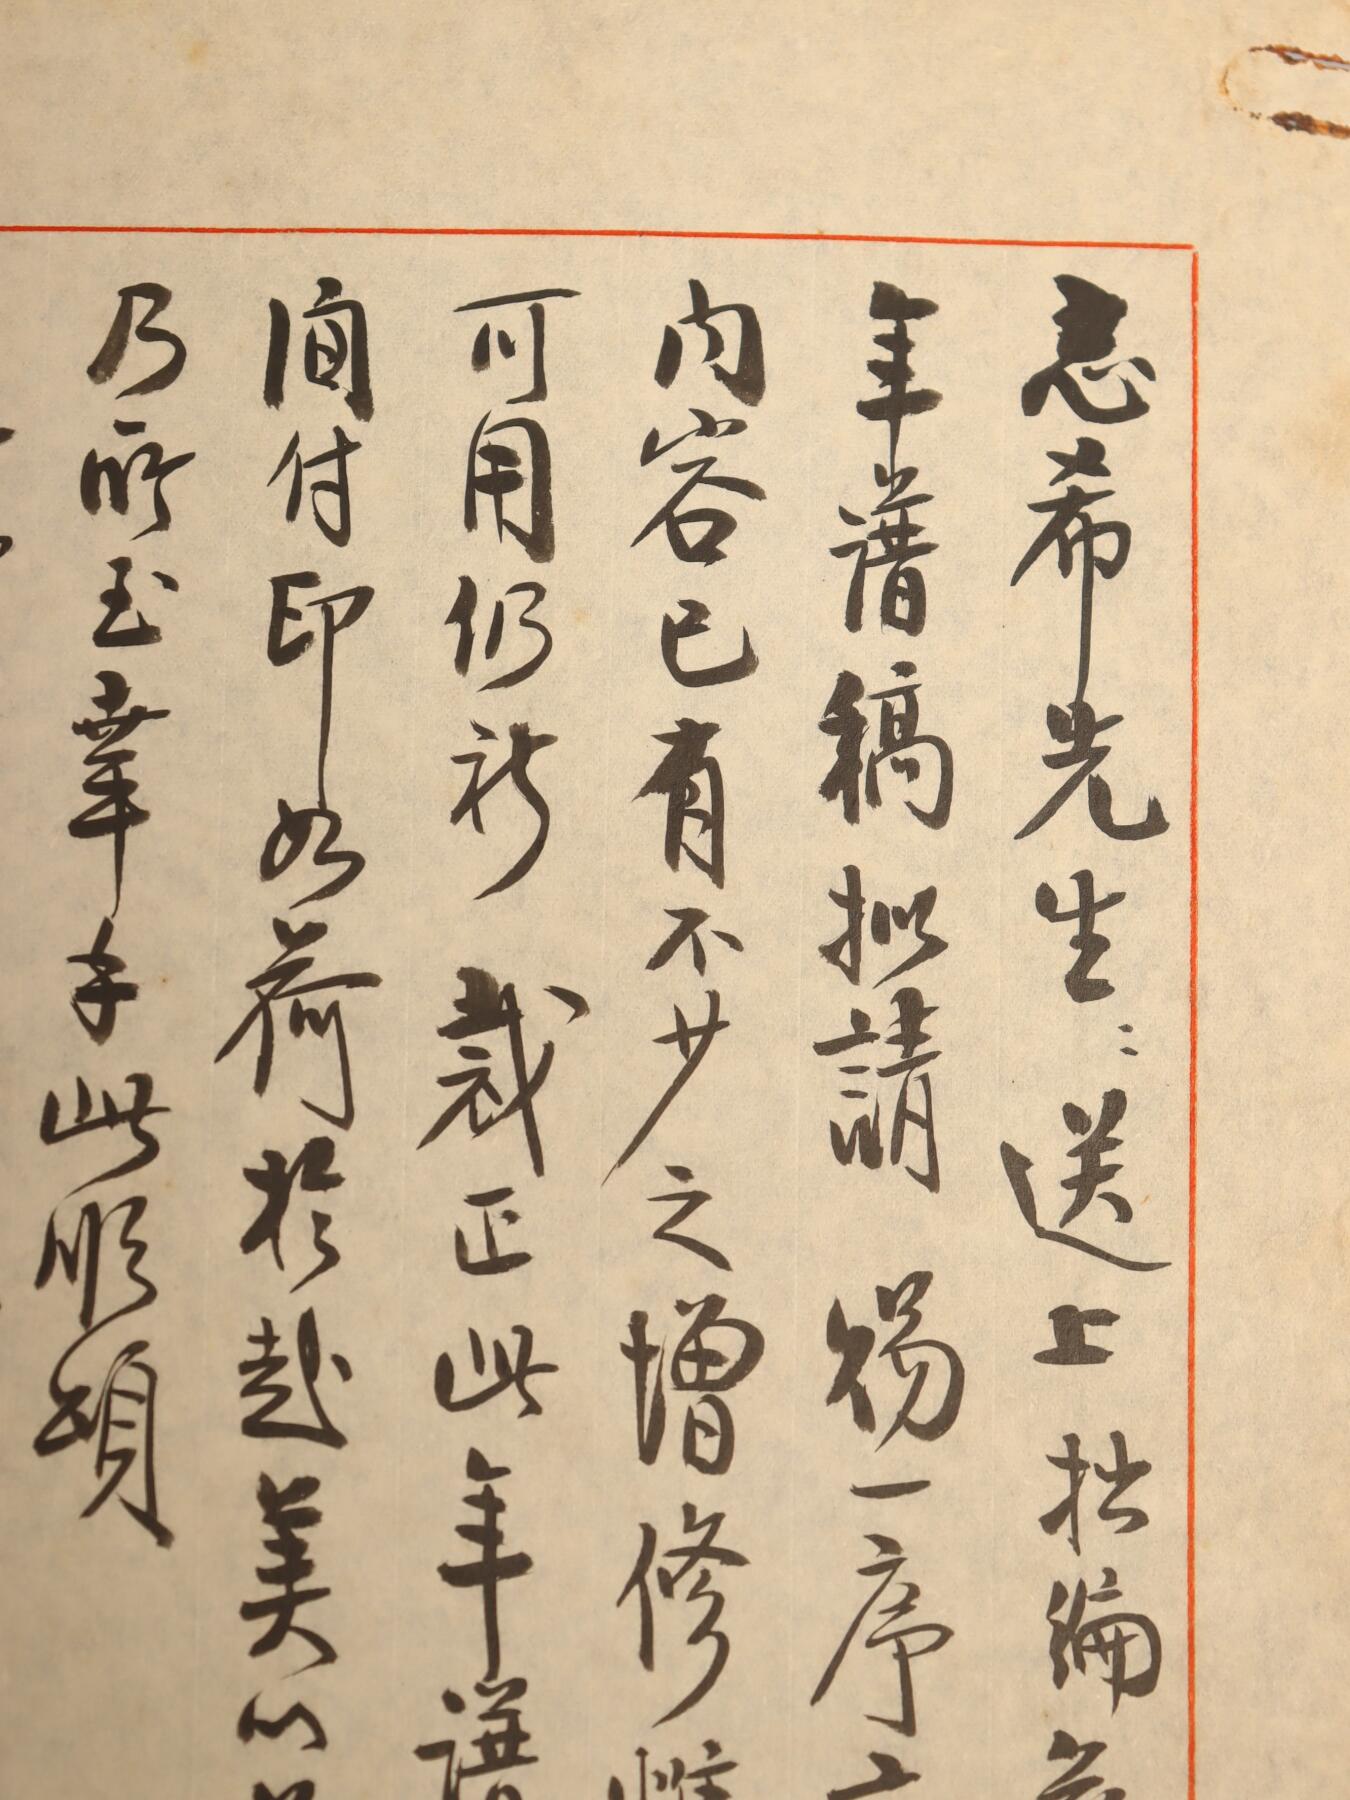 志希先生：送上拙編
年譜稿擬請　賜一序
內容已有不少之增修惟
可用仍祈　裁正此年譜
間付印如荷於赴美以
乃所至幸耑此順頌